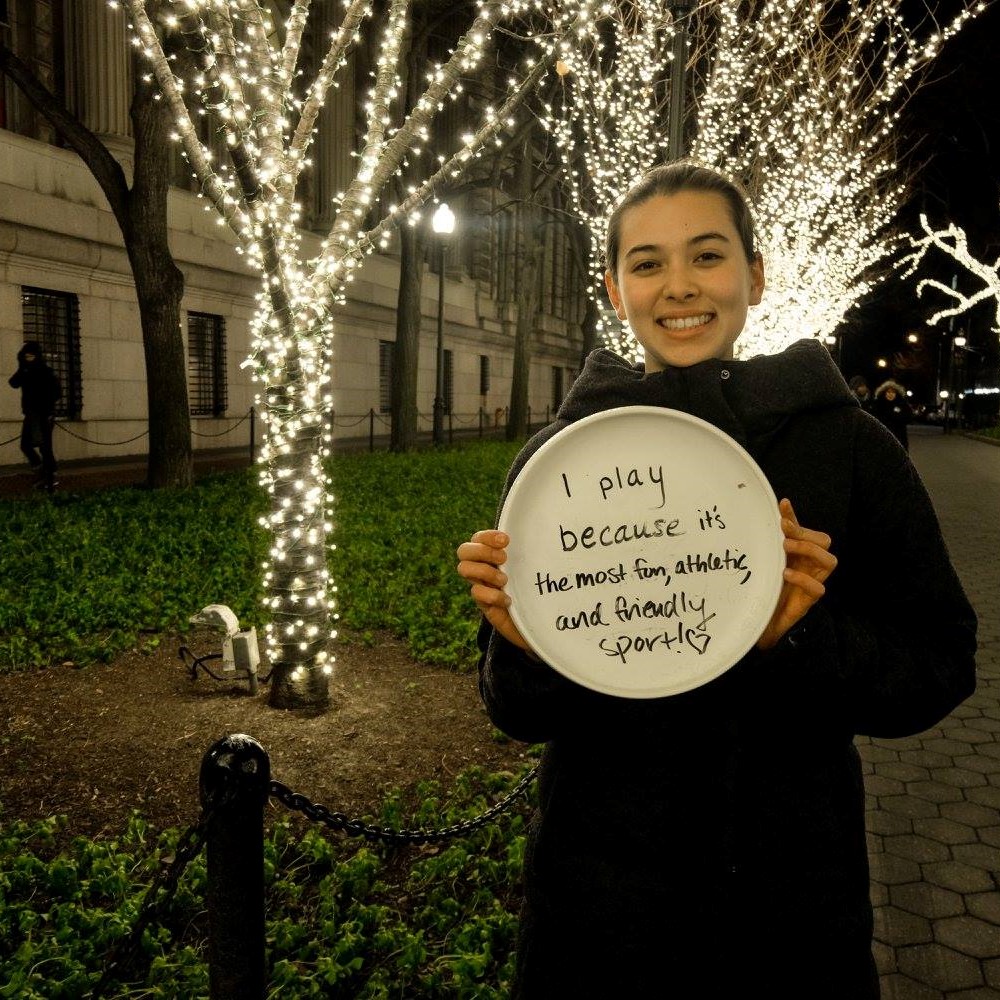 I play
because it's
the most fun, athletic,
and friendly
sport!♡